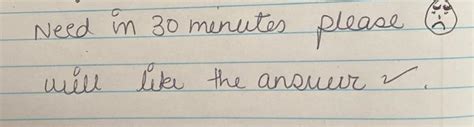 Need in 30 minutes please
will like the answer